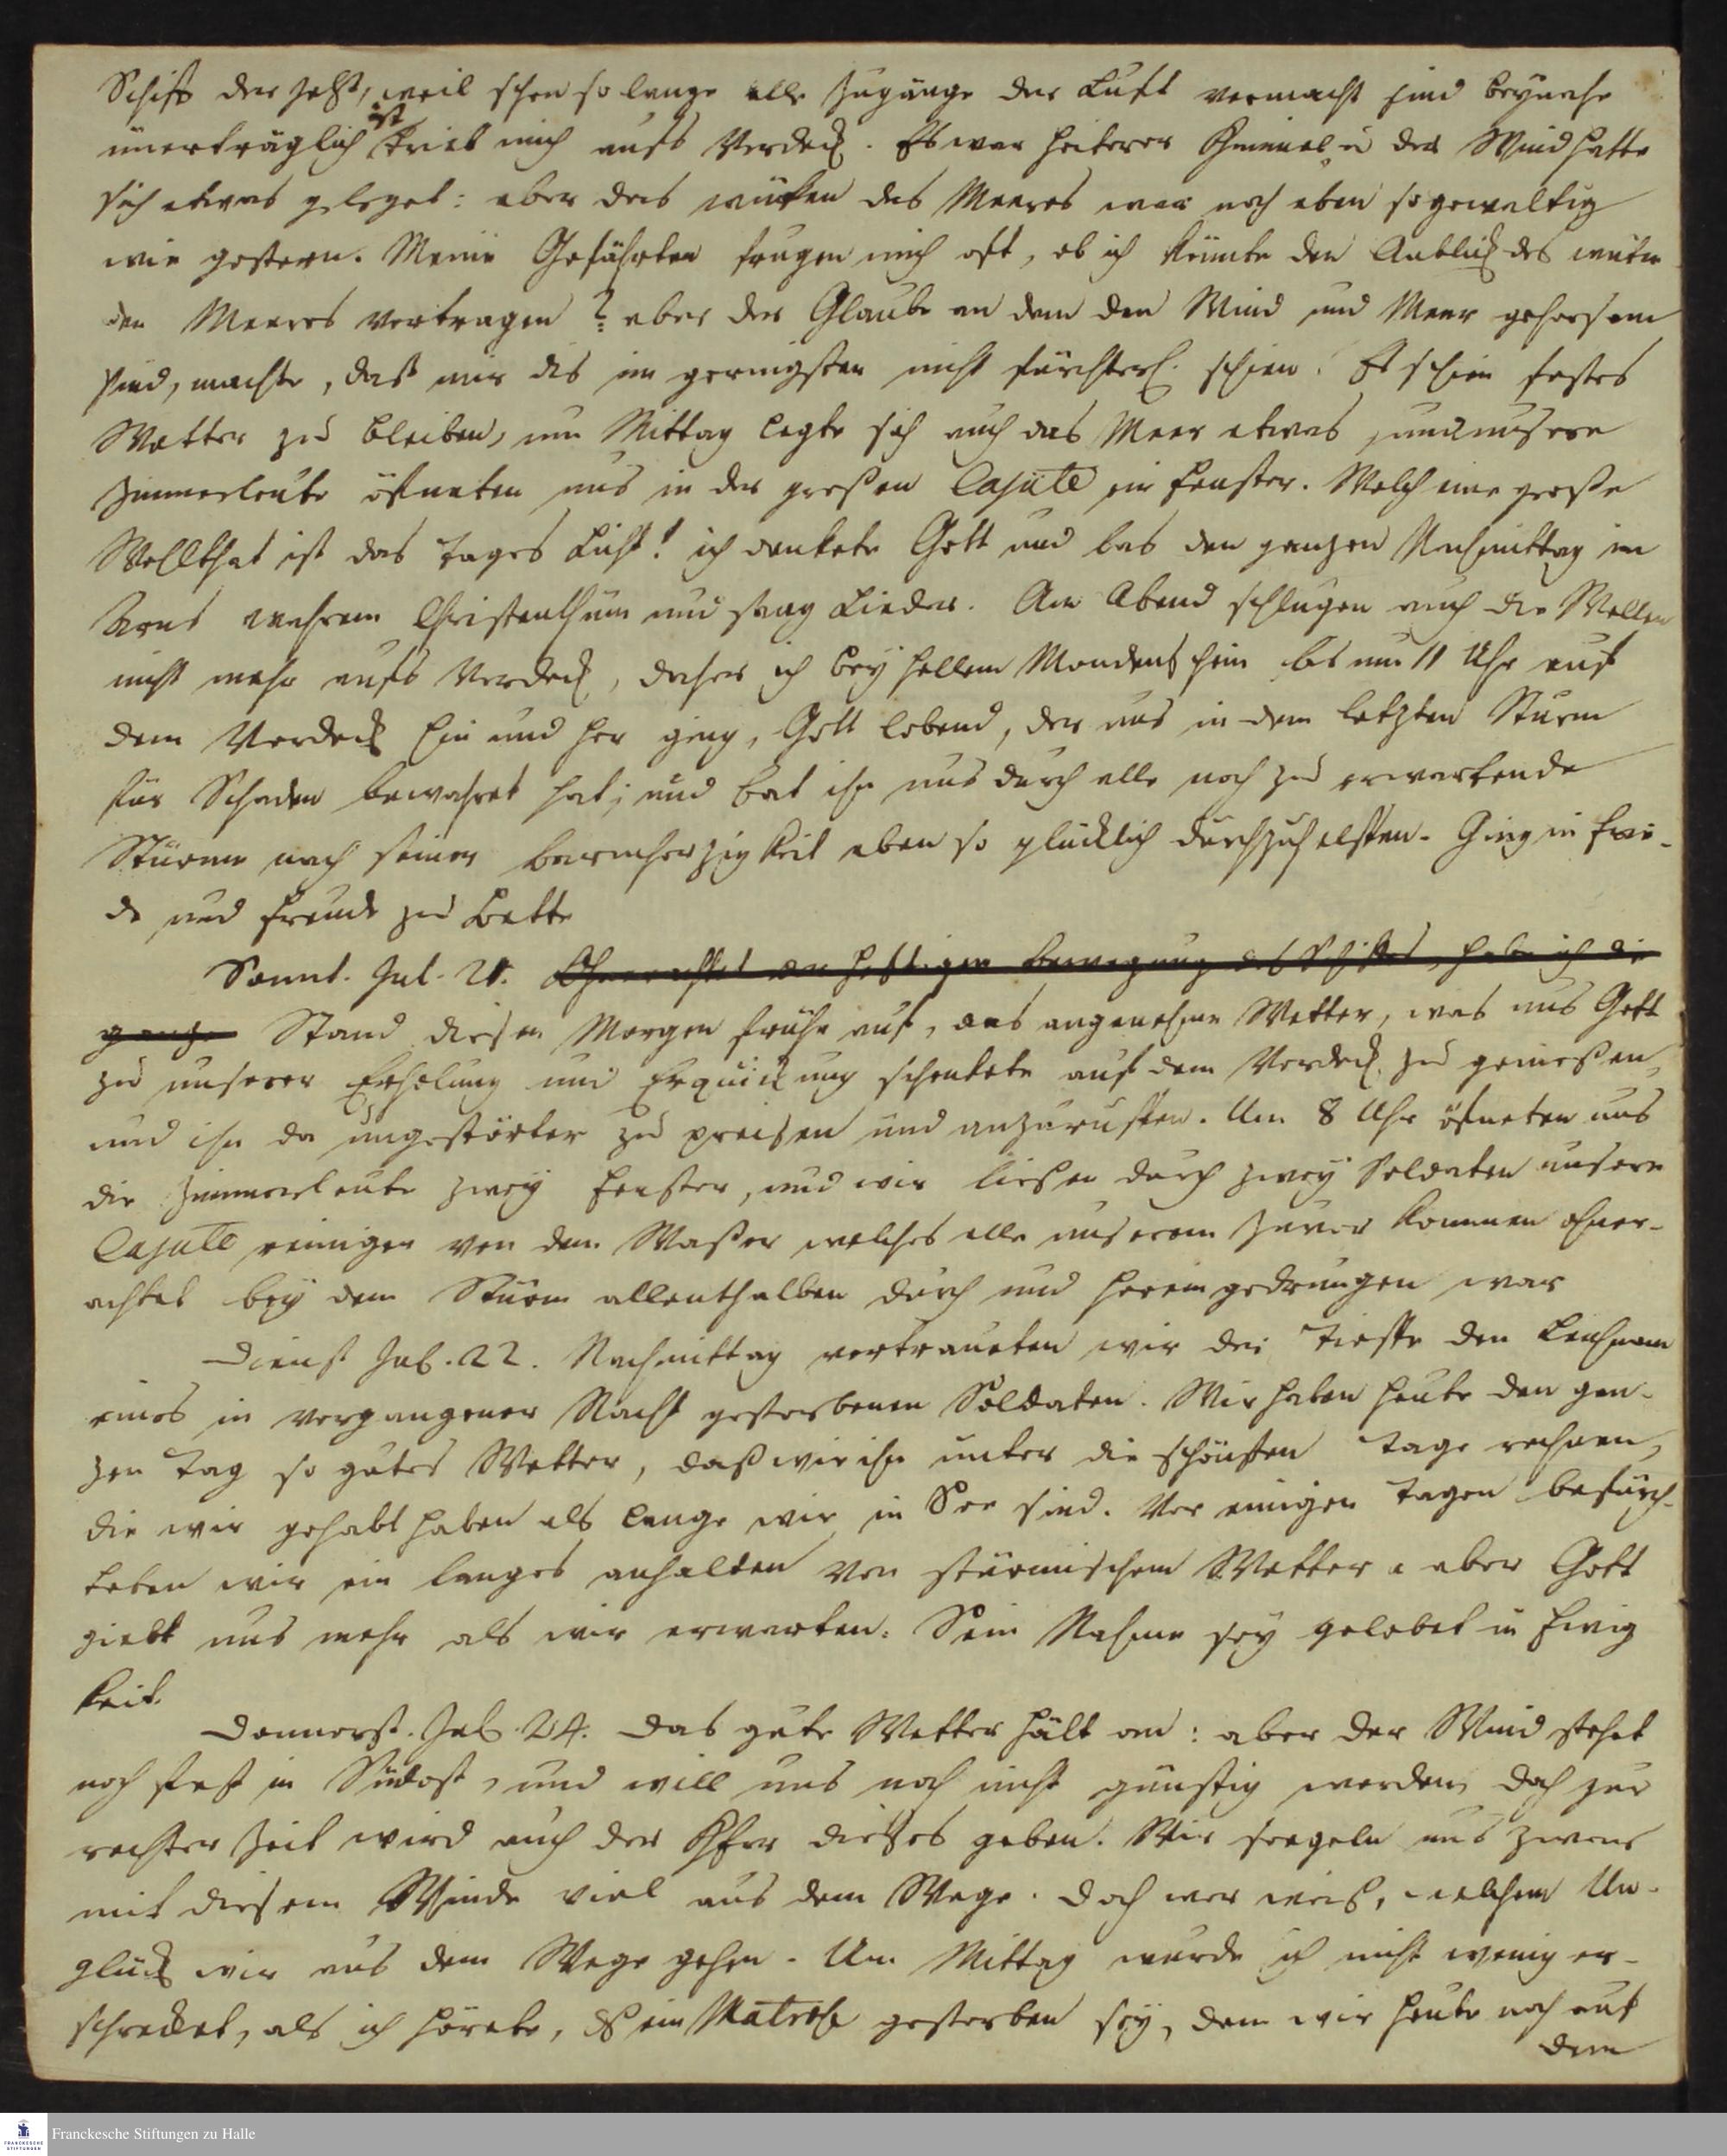 Schiff der jetzt, weil schon so lange alle Zugänge der Luft vermacht sind beynahe
unerträglich ist trieb mich aufs Verdeck. Es war heiterer Himmel u der Wind hatte
sich etwas geleget: aber das wüten des Meeres war noch eben so gewaltig
wie gestern. Meine Gefährten frugen mich oft, ob ich könnte den Anblick des wüten
den Meeres vertragen? aber der Glaube an dem den Wind und Meer gehorsam
sind, machte, daß mir dis im geringsten nicht fürchterl. schien. Es schien festes
Wetter zu bleiben, um Mittag legte sich auch das Meer etwas und unsere
Zimmerleute öfneten uns in der großen Cajüte ein Fenster. Welch eine große
Wohlthat ist das Tages Licht! ich dankete Gott und las den ganzen Nachmittag im
Arnds wahrem Christenthum und sang Lieder. Am Abend schlugen auch die Wellen
nicht mehr aufs Verdeck, daher ich bey hellem Mondenschein bis um 11 Uhr auf
dem Verdeck hin und her ging, Gott lobend, der uns in dem letzten Sturm
für Schaden bewahret hat; und bat ihn uns durch alle noch zu erwartende
Stürme nach seiner barmherzigkeit eben so glücklich durchzuhelffen. Ging in Frie-
de und Freude zu Bette
Sonnt. Jul. 20. Ohnerachtet der heftigen bewegung des Schiffes, habe ich die
ganze Stand diesen Morgen frühe auf, das angenehme Wetter, was uns Gott
zu unserer Erholung und Erquickung schenkete auf dem Verdeck zu genießen,
und ihn da ungestörter zu preisen und anzuruffen. Um 8 Uhr öfneten uns
die Zimmerleute zwey Fenster, und wir ließen durch zwey Soldaten unsere
Cajute reinigen von dem Waßer welches alle unserem zuvor kommen ohner-
achtet bey dem Sturm allenthalben durch und hereingedrungen war
Dienst Jul. 22. Nachmittag vertraueten wir der Tieffe den Leichnam
eines in vergangener Nacht gestorbenen Soldaten. Wir haben heute den gan-
zen Tag so gutes Wetter, daß wir ihn unter die schönsten Tage rechnen,
die wir gehabt haben als lange wir in See sind. Vor einigen Tagen befürch-
teten wir ein langes anhalten von stürmischem Wetter aber Gott
giebt uns mehr als wir erwarten. Sein Nahme sey gelobet in Ewig
keit.
Donnerst. Jul. 24. Das gute Wetter hält an: aber der Wind stehet
noch fest in Südost, und will uns noch nicht günstig werden, doch zur
rechter Zeit wird auch der Herr dieses geben. Wir seegeln uns zwar
mit diesem Winde viel aus dem Wege. Doch wer weiß, welchem Un-
glück wir aus dem Wege gehen. Um Mittag wurde ich nicht wenig er-
schrecket, als ich hörete, daß ein Matrose gestorben sey, dem wir heute noch auf
dem
Franckesche Stiftungen zu Halle
FRANCKESCHE
STIFTUNGEN